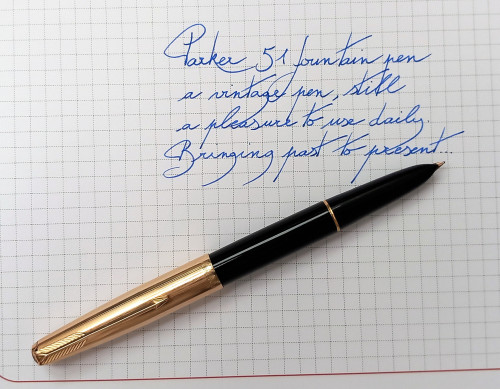 Parker 51 fountain pen
a vintage pen, still
a pleasure to use daily.
Bringing past to present...